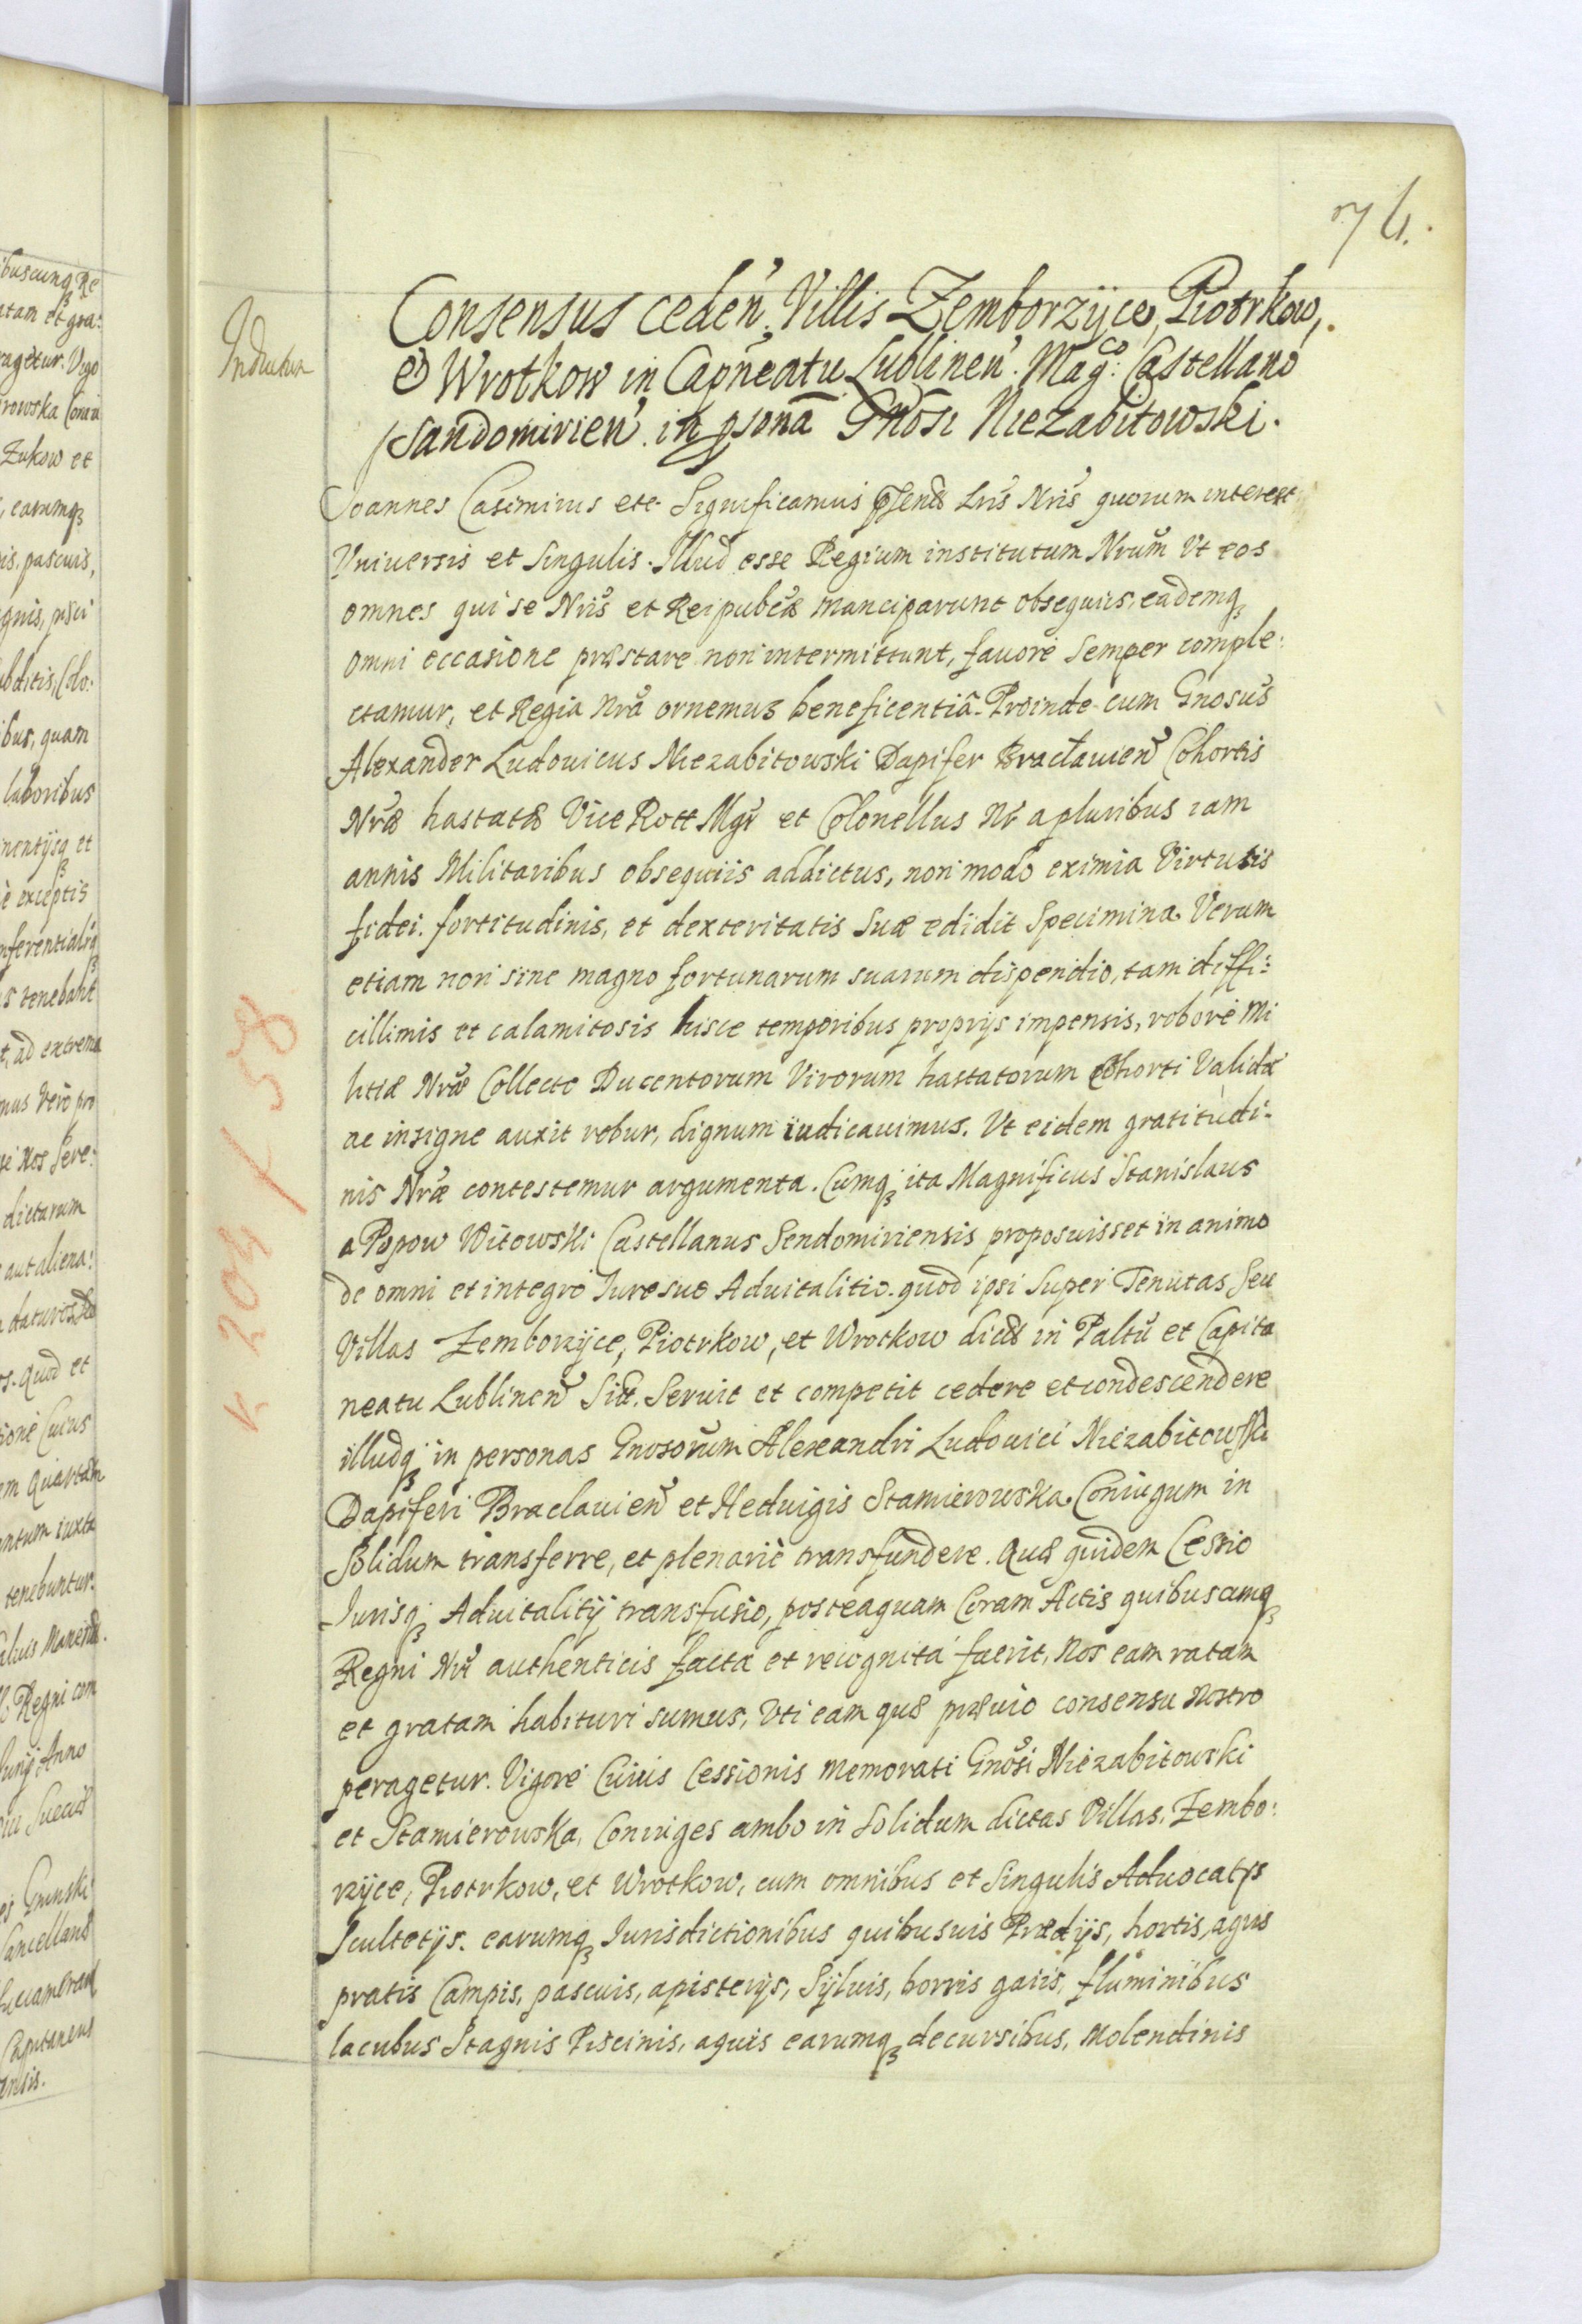 74.
Indultum
Consensus ceden̄. Villis Zemborzyce, Piotrkow,
& Wrotkow in Capn̄eatu Lublinen̄. Mag̃co: Castellano
Sandomirien̄. in psonā Gn̄osi Niezabitowski.
Joannes Casimirus etc. Significamus pn̄senđ Lr̃is Nr̃is quorum interest
Vniuersis et singulis. Illud esse Regium institutum Nrũm Vt eos
omnes qui se Nr̃is et Reipublicæ manciparunt obsequiis, eademqꝫ
omni occasione præstare non intermittunt, fauore semper comple:
ctamur, et Regia Nr̃a ornemus beneficentiâ. Proinde cum Gnosũs
Alexander Ludouicus Niezabitowski Dapifer Bracłauien̄ Cohortis
Nr̃æ hastatæ Vice Rott Mgr̃ et Colonellus Nr̃ a pluribus iam
annis Militaribus obsequiis addictus, non modo eximia Virtutis
fidei. fortitudinis, et dexteritatis suæ edidit specimina. Verum
etiam non sine magno fortunarum suarum dispendio, tam diffi:
cillimis et calamitosis hisce temporibus proprijs impensis, robore Mi
litiæ Nr̃æ Collecto Ducentorum Virorum hastatorum Cohorti Validæ
ac insigne auxit robur, dignum iudicauimus. Vt eidem gratitudi:
nis Nr̃æ contestemur argumenta. Cumqꝫ ita Magnificus Stanislaus
a Popow Witowski Castellanus Sendomiriensis proposuisset in animo
de omni et integro Iure suo Aduitalitio. quod ipsi super Tenutas seu
Villas Zemborzyce, Piotrkow, et Wrotkow dictas in Paltũ et Capita
neatu Lublinen̄ Sit. Seruit et competit cedere et condescendere
illudqꝫ in personas Gnosorũm Alexandri Ludouici Niezabitowski
Dapiferi Braclauien̄ et Heduigis Stamierowska Coniugum in
solidum transferre, et plenariè transfundere. Quæ quidem Cessio
Iurisqꝫ Aduitalitij transfusio, posteaquam Coram Actis quibuscumqꝫ
Regni Nr̃i authenticis facta et recognita fuerit, Nos eam ratam
et gratam habituri sumus, Vti eam quæ præuio consensu Nostro
peragetur. Vigore Cuius Cessionis memorati Gnõsi Niezabitowski
et Stamierowska, Coniuges ambo in solidum dictas Villas, Zembo:
rzyce, Piotrkow, et Wrotkow, cum omnibus et singulis Aduocatijs
Scultetijs. earumqꝫ Iurisdictionibus quibusuis Prædijs, hortis, agris
pratis Campis, pascuis, apisterijs, Syluis, borris gaiis, fluminibus
lacubus Stagnis Piscinis, aquis earumqꝫ decursibus, Molendinis